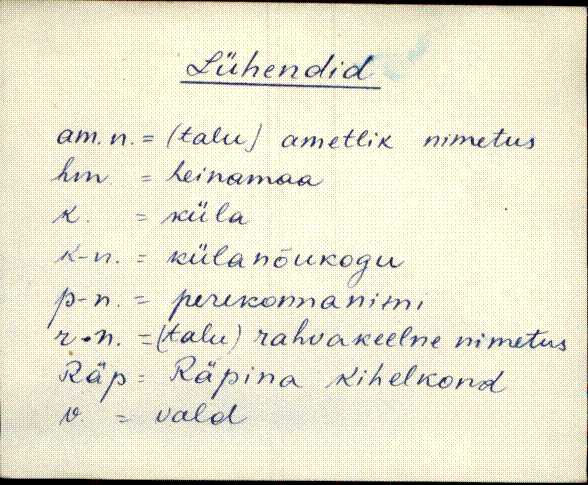 Lühendid
am. n. = (talu) ametlik nimetus
hm. = heinamaa
k. = küla
k-n. = külanõukogu
p-n. = perekonnanimi
r.n. = (talu) rahvakeelne nimetus
Räp = Räpina kihelkond
v. = vald